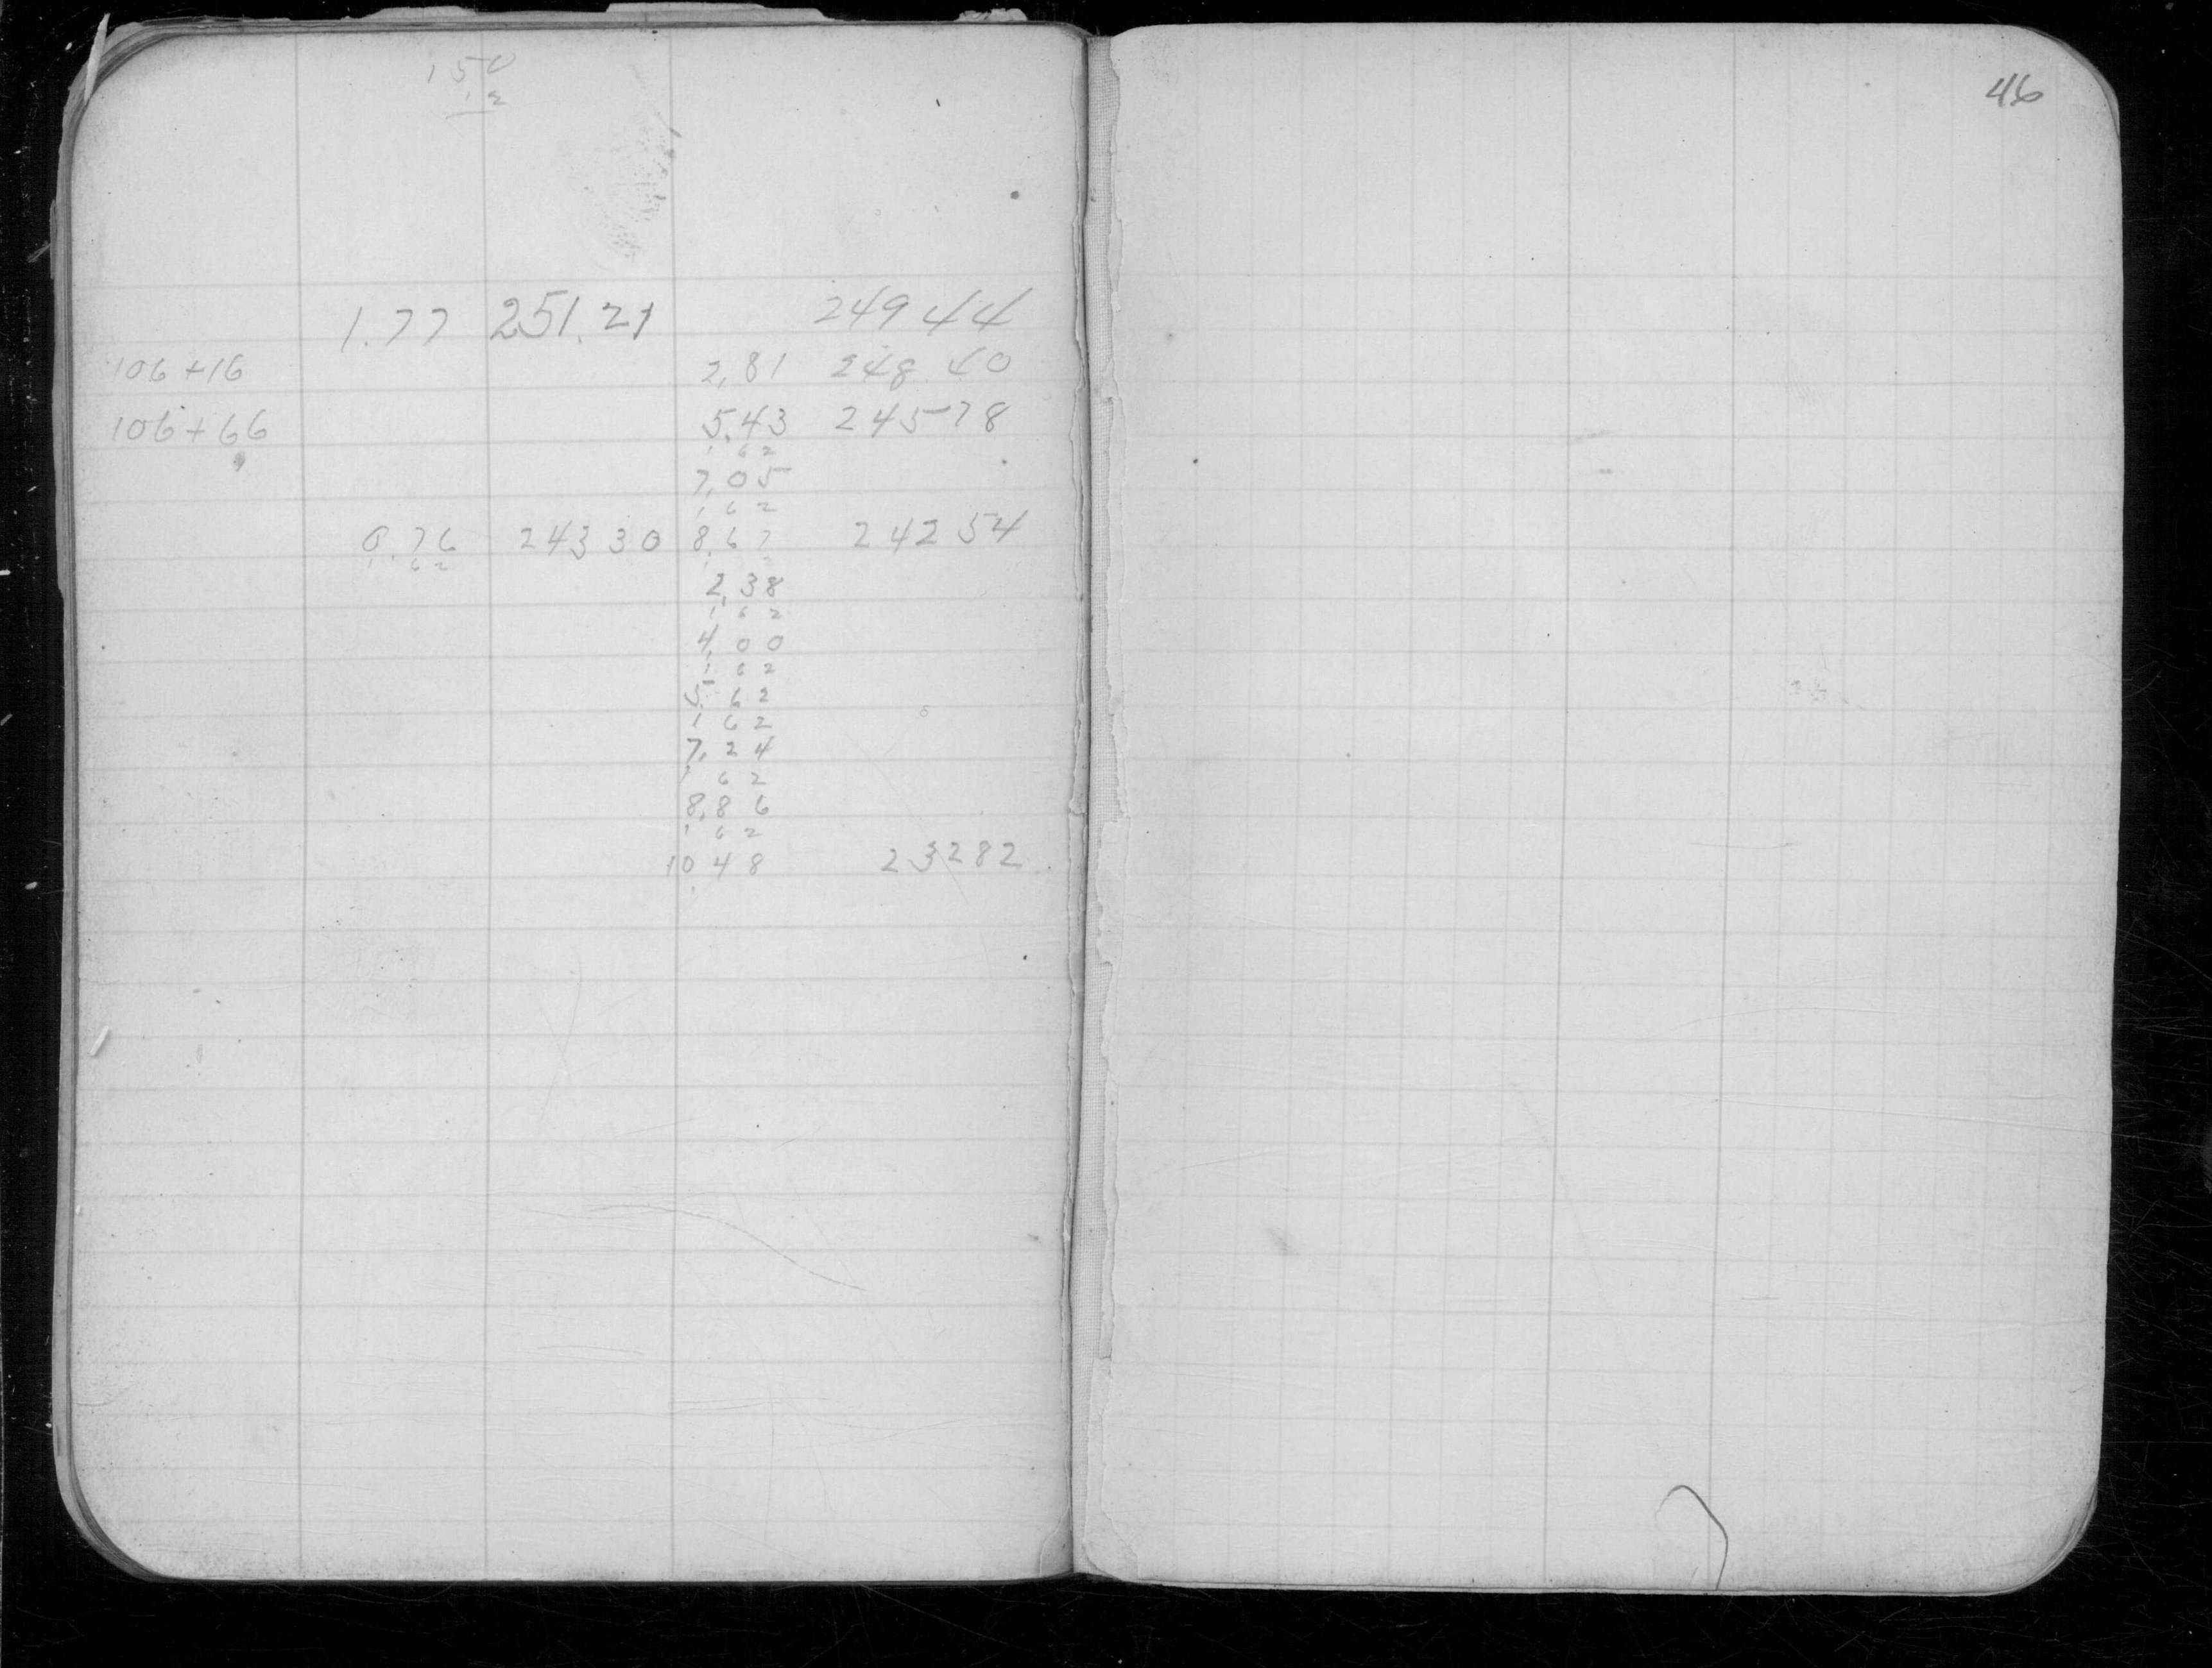 150
.2
1.77 251.21 249 44
106+16 2,81 248.40
106+66 5.43 245 78
1 62
7,05
1 62
0.76 243 30 8,67 242 54
1 62
2,38
1 62
4,00
1 62
5 62
1 62
7,24
1 62
8,86
1 62
10 48 232 82
46